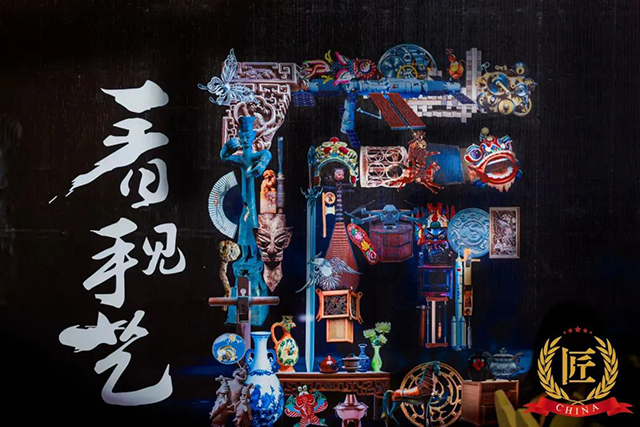 看见手艺
匠
匠
CHINA